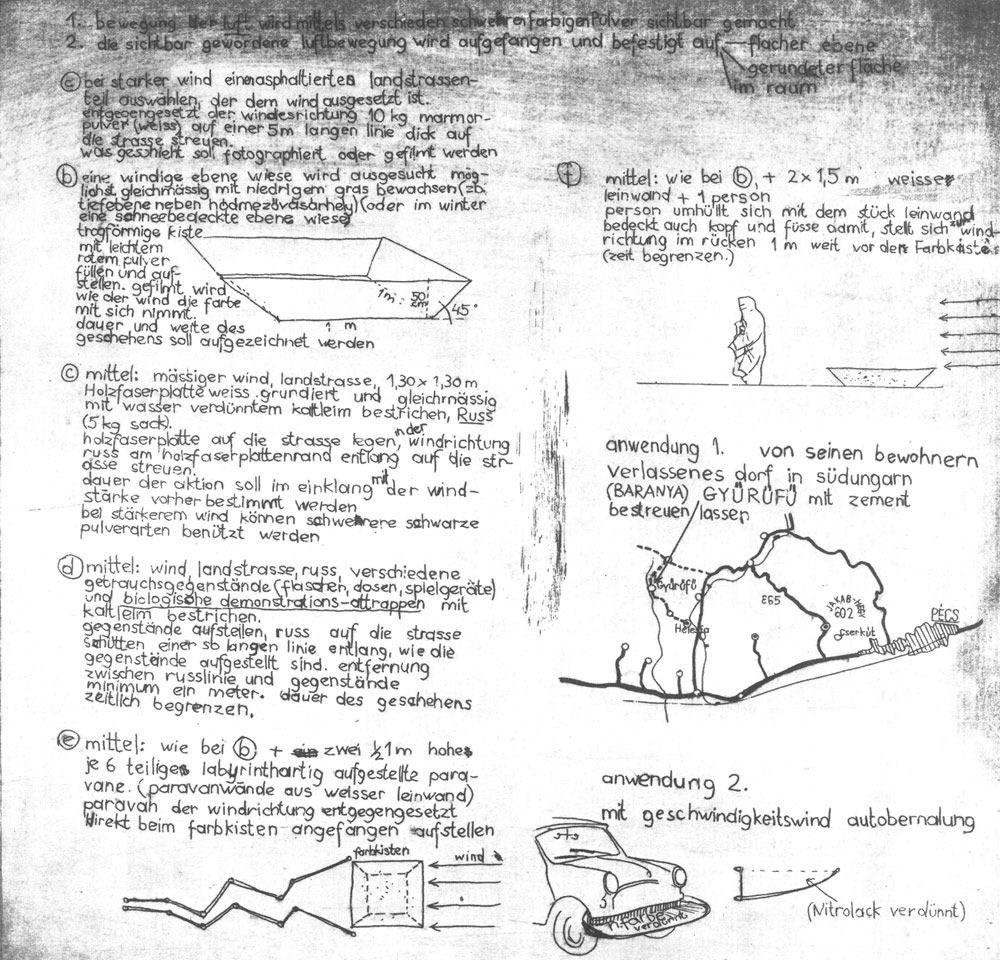 1. bewegung der luft wird mittels verschieden schwehren farbigen Pulver sichtbar gemacht
2. die sichtbar gewordene luftbewegung wird aufgefangen und befestigt auf flacher ebene
gerundeter fläche
im raum
a bei starker wind einen asphaltierten landstrassen-
teil auswählen, der dem wind ausgesetzt ist.
entgegengesetzt der windesrichtung 10 kg marmor-
pulver (weiss) auf einer 5m langen linie dick auf
die strasse streuen.
was geschieht soll fotographiert oder gefilmt werden
b eine windige ebene wiese wird ausgesucht mög-
lichst gleichmässig mit niedrigem gras bewachsen (zb.
tiefebene neben hódmezővásárhely) (oder im winter
eine schneebedeckte ebene wiese)
trogförmige kiste
mit leichtem
rotem pulver
füllen und auf-
stellen. gefilmt wird
wie der wind die farbe
mit sich nimmt.
dauer und weite des
geschehens soll aufgezeichnet werden
1m
50 cm
45°
1 m
c mittel: mässiger wind, landstrasse, 1,30 x 1,30 m
Holzfaserplatte weiss grundiert und gleichmässig
mit wasser verdünntem kaltleim bestrichen, Russ
(5 kg sack).
holzfaserplatte auf die strasse legen, in der windrichtung
russ am holzfaserplattenrand entlang auf die str-
asse streuen.
dauer der aktion soll im einklang mit der wind-
stärke vorher bestimmt werden
bei stärkerem wind können schwehrere schwarze
pulverarten benützt werden
d mittel: wind, landstrasse, russ, verschiedene
gebrauchsgegenstände (flaschen, dosen, spielgeräte)
und biologische demonstrations-attrappen mit
kaltleim bestrichen.
gegenstände aufstellen, russ auf die strasse
schütten einer so langen linie entlang, wie die
gegenstände aufgestellt sind. entfernung
zwischen russlinie und gegenstände
minimum ein meter. dauer des geschehens
zeitlich begrenzen.
e mittel: wie bei b + ein zwei ½ 1 m hohes
je 6 teiliges labyrinthartig aufgestellte para-
vane. (paravanwände aus weisser leinwand)
paravan der windrichtung entgegengesetzt
direkt beim farbkisten angefangen aufstellen
farbkisten
wind
f mittel: wie bei b, + 2 x 1,5 m weisser
leinwand + 1 person
person umhüllt sich mit dem stück leinwand
bedeckt auch kopf und füsse damit, stellt sich zur wind-
richtung im rücken 1 m weit vor den Farbkiste.
(zeit begrenzen.)
anwendung 1. von seinen bewohnern
verlassenes dorf in südungarn
(BARANYA) GYŰRŰFŰ mit zement
bestreuen lassen
Gyűrűfű
Helesfa
JAKAB-HEGY
602
Cserkút
PÉCS
anwendung 2.
mit geschwindigkeitswind autobemalung
n. farbe
verdünnt
(Nitrolack verdünnt)